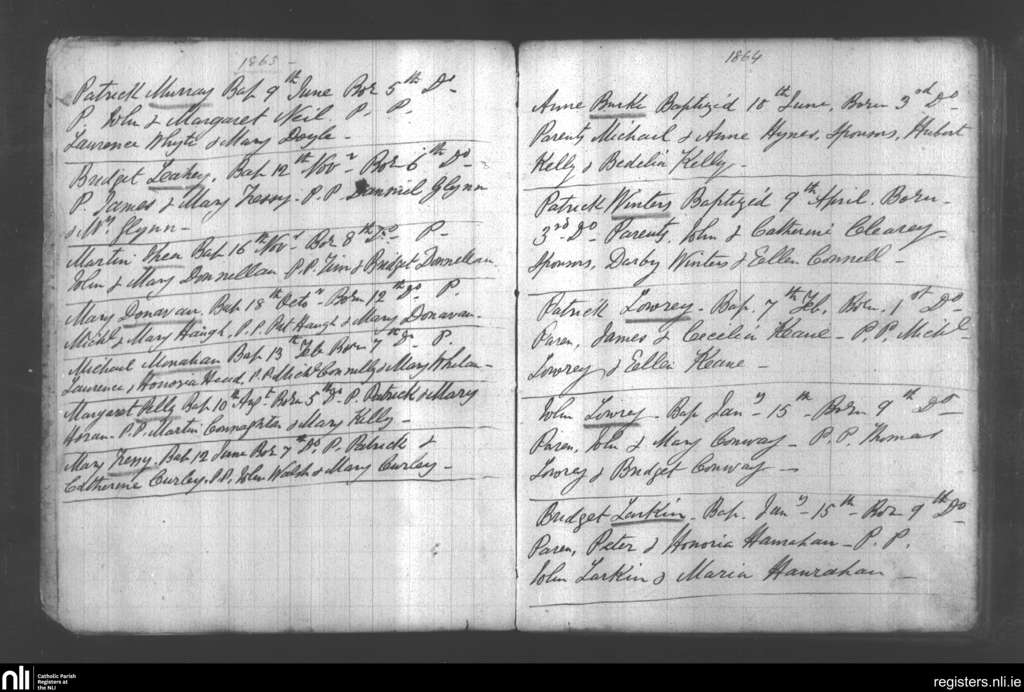 1865 -
Patrick Murray Bap 9th June Bor 5th Do
P. John & Margaret Neil. P. P.
Laurence Whyte & Mary Doyle -
Bridget Leahey. Bap 12th Novr Bor 6th Do
P. James & Mary Fessy. P.P. Glynn
& Glynn -
Martin Shea Bap 16th Novr Bor 8th Do - P -
John & Mary Donnellan P.P. Tim & Bridget Donnellan
Mary Donavan. Bap 18th Octor Born 12th Do P.
Michl & Mary Haugh. P.P. Pat Haugh & Mary Donavan -
Michael Monahan Bap 13th Feb Born 7th Do P.
Laurence & Honoria Head. P.P. Michl Connelly & Mary Whelan -
Margaret Kelly Bap 10th Augt Born 5th Do P. Patrick & Mary
Horan - P.P. Martin & Mary Kelly -
Mary Fessy. Bap 12 June Bor 7th Do P. Patrick &
Catherine Curley. P.P. John Walsh & Mary Curley -
1864
Anne Burke Baptized 10th June, Born 3rd Do
Parents Michael & Anne Hynes, Sponsors, Hubert
Kelly & Bedelia Kelly -
Patrick Winters Baptized 9th April. Born -
3rd Do Parents, John & Catherine Clearey -
Sponsors, Darby Winters & Ellen Connell -
Patrick Lowrey. Bap. 7th Feb, Born, 1st Do
Paren, James & Cecelia Keane - P.P. Michl
Lowrey & Ellen Keane -
John Lowrey - Bap Jany 15th - Born 9th Do
Paren, John & Mary Conway - P.P. Thomas
Lowrey & Bridget Conway -
Bridget Larkin. Bap. Jany - 15th - Bor 9th Do
Paren, Peter & Honoria Hanrahan - P. P.
John Larkin & Maria Hanrahan -
nli
Catholic Parish
Registers at
the NLI
registers.nli.ie